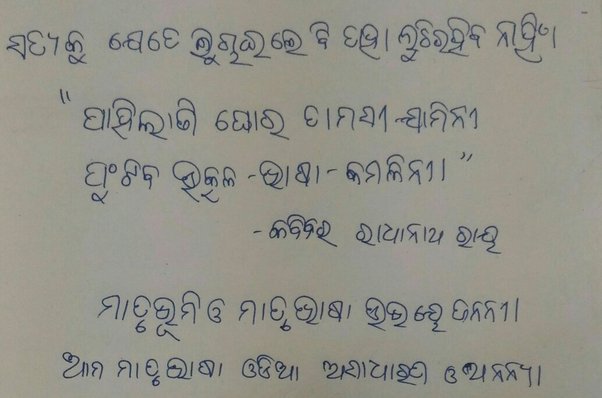 ସତ୍ୟକୁ ଯେତେ ଲୁଚାଇଲେ ବି ତାହା ଲୁଚିରହିବ ନାହିଁ।
“ପାହିଲାଣି ଘୋର ତାମସୀ-ଯାମିନୀ
ଫୁଟିବ ଉତ୍କଳ-ଭାଷା-କମଳିନୀ।”
-କବିବର ରାଧାନାଥ ରାୟ
ମାତୃଭୂମି ଓ ମାତୃଭାଷା ଉଭୟେ ଜନନୀ।
ଆମ ମାତୃଭାଷା ଓଡିଆ ଅସାଧାରଣ ଓ ଅନନ୍ୟ।